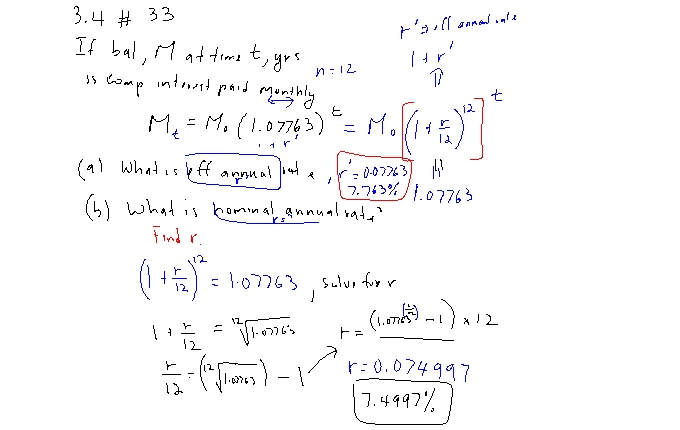 3.4 # 33
r' = eff annual rate
If bal, M at time t, yrs
1 + r'
is comp interest paid monthly
n = 12
M_t = M_0 (1.07763)^t = M_0 [(1 + r/12)^12]^t
1 + r'
(a) What is eff annual rate, r' = 0.07763
7.763%
1.07763
(b) What is nominal annual rate?
r =
Find r.
(1 + r/12)^12 = 1.07763, solve for r
1 + r/12 = ¹²√1.07763
r/12 = (¹²√1.07763) - 1
r = (1.07763^(1/12) - 1) × 12
r = 0.074997
7.4997%